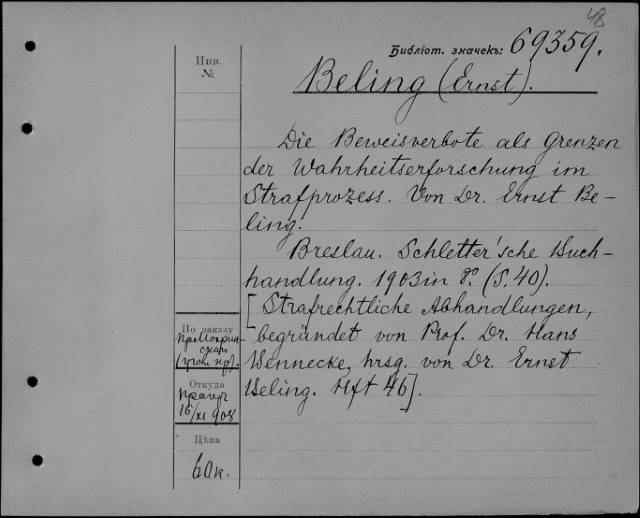 4В
Библіот. значекъ: 69359.
Инв.
№
Beling (Ernst).
Die Beweisverbote als Grenzen
der Wahrheitserforschung im
Strafprozess. Von Dr. Ernst Be-
ling.
Breslau. Schletter'sche Buch-
handlung. 1903 in 8º. (S. 40).
[Strafrechtliche Abhandlungen,
begründet von Prof. Dr. Hans
Bennecke, hrsg. von Dr. Ernst
Beling. Hft 46].
По заказу
Откуда
16/XI 908
Цѣна
60к.